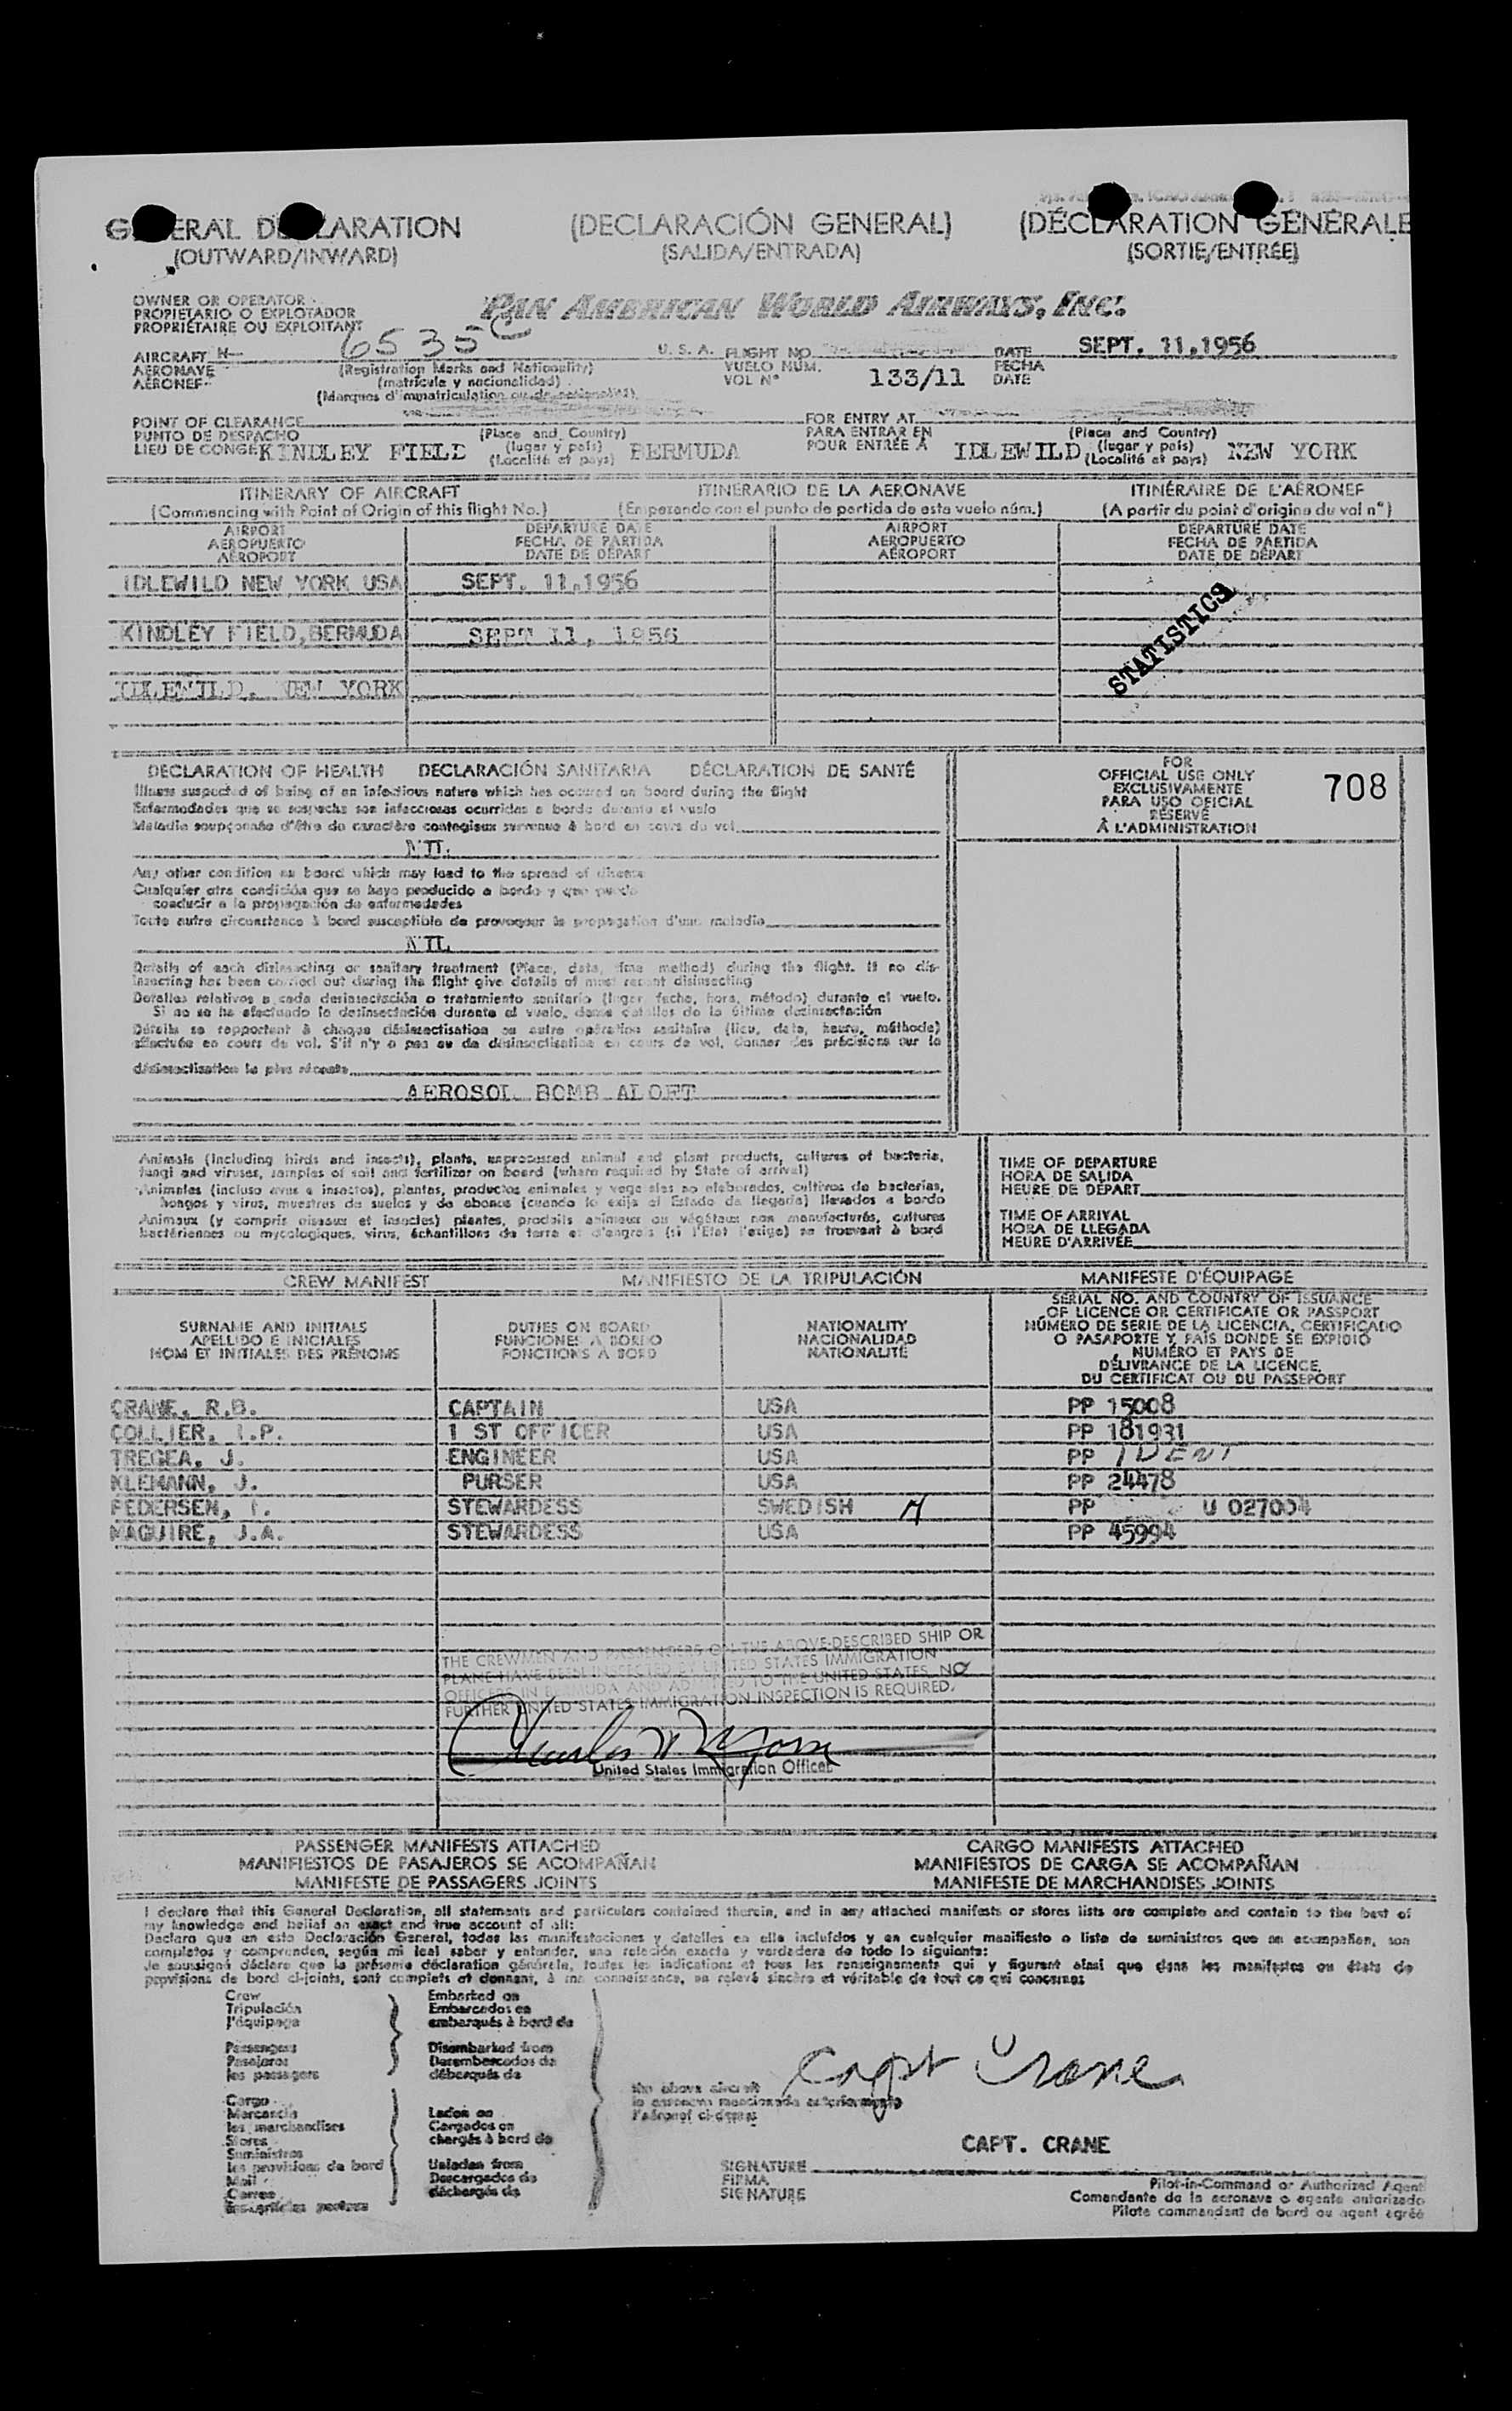 GENERAL DECLARATION (DECLARACIÓN GENERAL) (DÉCLARATION GÉNÉRALE
(OUTWARD/INWARD) (SALIDA/ENTRADA) (SORTIE/ENTRÉE)
OWNER OR OPERATOR
PROPIETARIO O EXPLOTADOR
PROPRIÉTAIRE OU EXPLOITANT
PAN AMERICAN WORLD AIRWAYS, INC.
AIRCRAFT N- 6535C U. S. A. FLIGHT NO. DATE SEPT. 11,1956
AERONAVE (Registration Marks and Nationality) VUELO NÚM. 133/11 FECHA
AÉRONEF (matrícula y nacionalidad) VOL N° DATE
(Marques d'immatriculation ou de nationalité)
POINT OF CLEARANCE FOR ENTRY AT
PUNTO DE DESPACHO (Place and Country) PARA ENTRAR EN (Place and Country)
LIEU DE CONGÉ KINDLEY FIELD (lugar y país) BERMUDA POUR ENTRÉE À IDLEWILD (lugar y país) NEW YORK
(Localité et pays) (Localité et pays)
ITINERARY OF AIRCRAFT ITINERARIO DE LA AERONAVE ITINÉRAIRE DE L'AÉRONEF
(Commencing with Point of Origin of this flight No.) (Empezando con el punto de partida de esta vuelo núm.) (A partir du point d'origine du vol n°)
AIRPORT DEPARTURE DATE AIRPORT DEPARTURE DATE
AEROPUERTO FECHA DE PARTIDA AEROPUERTO FECHA DE PARTIDA
AÉROPORT DATE DE DÉPART AÉROPORT DATE DE DÉPART
IDLEWILD NEW YORK USA SEPT. 11,1956
STATISTICS
KINDLEY FIELD,BERMUDA SEPT 11, 1956
IDLEWILD, NEW YORK
DECLARATION OF HEALTH DECLARACIÓN SANITARIA DÉCLARATION DE SANTÉ
FOR
OFFICIAL USE ONLY
EXCLUSIVAMENTE
PARA USO OFICIAL
RÉSERVÉ
À L'ADMINISTRATION
708
Illness suspected of being of an infectious nature which has occured on board during the flight
Enfermedades que se sospecha son infecciosas ocurridas a bordo durante el vuelo
Maladie soupçonnée d'être de caractère contagieux survenue à bord en cours du vol
NIL
Any other condition on board which may lead to the spread of disease
Cualquier otra condición que se haya producido a bordo y que pueda
conducir a la propagación de enfermedades
Toute autre circonstance à bord susceptible de provoquer la propagation d'une maladie
NIL
Details of each disinsecting or sanitary treatment (Place, date, time method) during the flight. If no dis-
insecting has been carried out during the flight give details of most recent disinsecting
Detalles relativos a cada desinsectación o tratamiento sanitario (lugar, fecha, hora, método) durante el vuelo.
Si no se ha efectuado la desinsectación durante el vuelo, dense detalles de la última desinsectación
Détails se rapportant à chaque désinsectisation ou autre opération sanitaire (lieu, date, heure, méthode)
effectuée en cours de vol. S'il n'y a pas eu de désinsectisation en cours de vol, donner des précisions sur la
désinsectisation la plus récente
AEROSOL BOMB ALOFT
Animals (Including birds and insects), plants, unprocessed animal and plant products, cultures of bacteria,
fungi and viruses, samples of soil and fertilizer on board (where required by State of arrival)
Animales (incluso aves e insectos), plantas, productos animales y vegetales no elaborados, cultivos de bacterias,
hongos y virus, muestras de suelos y de abonos (cuando lo exija el Estado de llegada) llevados a bordo
Animaux (y compris oiseaux et insectes) plantes, produits animaux ou végétaux non manufacturés, cultures
bactériennes ou mycologiques, virus, échantillons de terre et d'engrais (si l'Etat l'exige) se trouvant à bord
TIME OF DEPARTURE
HORA DE SALIDA
HEURE DE DÉPART
TIME OF ARRIVAL
HORA DE LLEGADA
HEURE D'ARRIVÉE
CREW MANIFEST MANIFIESTO DE LA TRIPULACIÓN MANIFESTE D'ÉQUIPAGE
SURNAME AND INITIALS
APELLIDO E INICIALES
NOM ET INITIALES DES PRÉNOMS
DUTIES ON BOARD
FUNCIONES A BORDO
FONCTIONS À BORD
NATIONALITY
NACIONALIDAD
NATIONALITÉ
SERIAL NO. AND COUNTRY OF ISSUANCE
OF LICENCE OR CERTIFICATE OR PASSPORT
NÚMERO DE SERIE DE LA LICENCIA, CERTIFICADO
O PASAPORTE Y PAÍS DONDE SE EXPIDIÓ
NUMÉRO ET PAYS DE
DÉLIVRANCE DE LA LICENCE,
DU CERTIFICAT OU DU PASSEPORT
CRANE, R.B. CAPTAIN USA PP 15008
COLLIER, I.P. 1 ST OFFICER USA PP 181931
TREGEA, J. ENGINEER USA PP IDENT
KLEMANN, J. PURSER USA PP 24478
PEDERSEN, I. STEWARDESS SWEDISH PP U 027004
MAGUIRE, J.A. STEWARDESS USA PP 45994
THE CREWMEN AND PASSENGERS ON THE ABOVE-DESCRIBED SHIP OR
PLANE HAVE BEEN INSPECTED BY UNITED STATES IMMIGRATION
OFFICERS IN BERMUDA AND ADMITTED TO THE UNITED STATES. NO
FURTHER UNITED STATES IMMIGRATION INSPECTION IS REQUIRED.
United States Immigration Officer
PASSENGER MANIFESTS ATTACHED CARGO MANIFESTS ATTACHED
MANIFIESTOS DE PASAJEROS SE ACOMPAÑAN MANIFIESTOS DE CARGA SE ACOMPAÑAN
MANIFESTE DE PASSAGERS JOINTS MANIFESTE DE MARCHANDISES JOINTS
I declare that this General Declaration, all statements and particulars contained therein, and in any attached manifests or stores lists are complete and contain to the best of
my knowledge and belief an exact and true account of all:
Declaro que en esta Declaración General, todas las manifestaciones y detalles en ella incluídos y en cualquier manifiesto o lista de suministros que se acompañen, son
completos y comprenden, según mi leal saber y entender, una relación exacta y verdadera de todo lo siguiente:
Je soussigné déclare que la présente déclaration générale, toutes les indications et tous les renseignements qui y figurent ainsi que dans les manifestes ou états de
provisions de bord ci-joints, sont complets et donnent, à ma connaissance, un relevé sincère et véritable de tout ce qui concerne:
Crew Embarked on
Tripulación Embarcados en
l'équipage embarqués à bord de
Passengers Disembarked from
Pasajeros Desembarcados de
les passagers débarqués de
the above aircraft
la aeronave mencionada anteriormente
l'aéronef ci-dessus
Capt Crane
Cargo
Mercancía Laden on
les marchandises Cargados en
Stores chargés à bord de
Suministros
les provisions de bord Unladen from
Mail Descargados de
Correo déchargés de
CAPT. CRANE
SIGNATURE
FIRMA
SIGNATURE
Pilot-in-Command or Authorized Agent
Comandante de la aeronave o agente autorizado
Pilote commandant de bord ou agent agréé